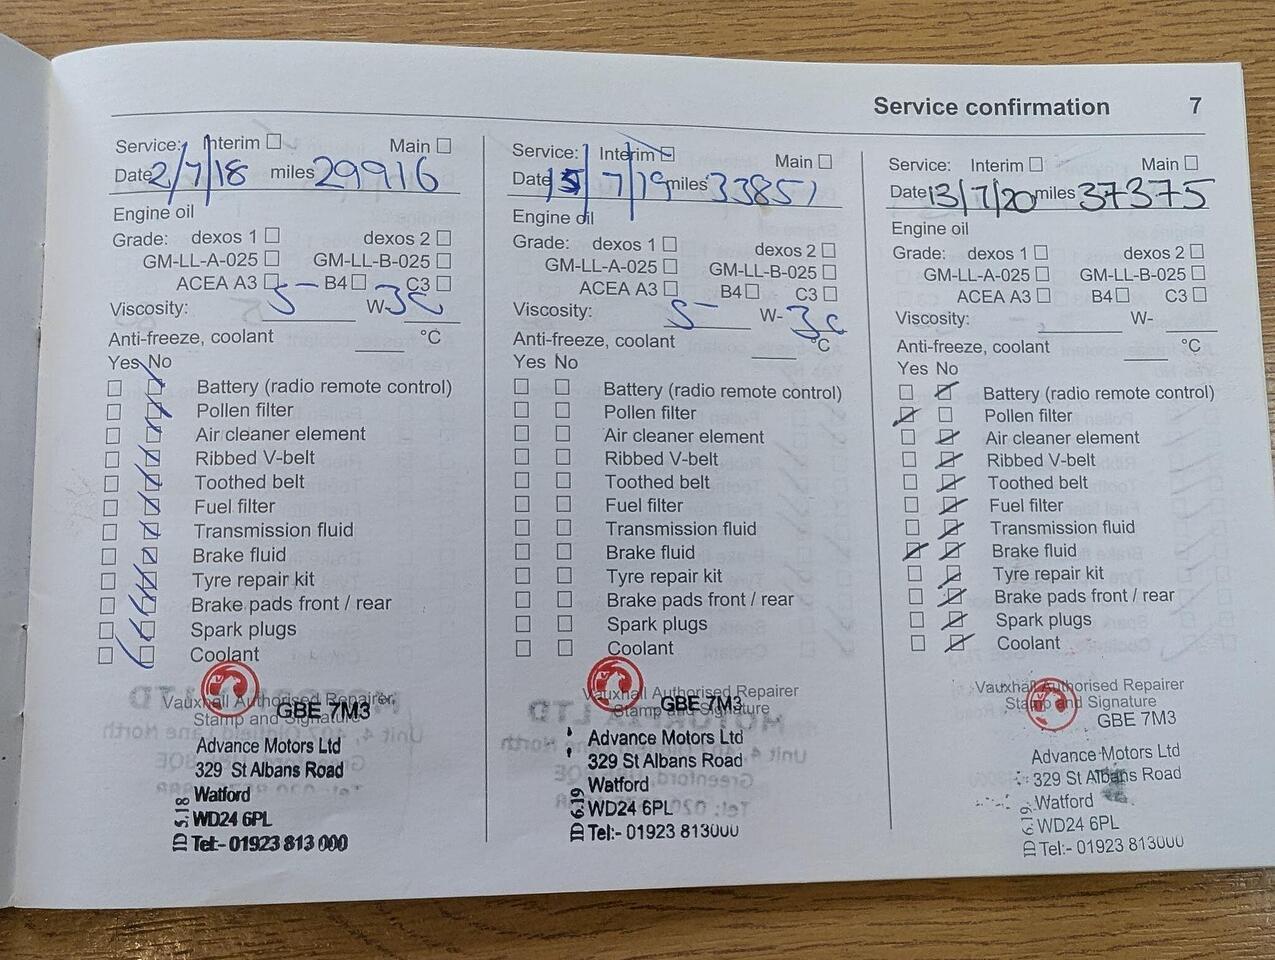 Service confirmation 7
Service: Interim Main
Date 2/7/18 miles 29916
Engine oil
Grade: dexos 1 dexos 2
GM-LL-A-025 GM-LL-B-025
ACEA A3 B4 C3
Viscosity: 5- W-30
Anti-freeze, coolant °C
Yes No
Battery (radio remote control)
Pollen filter
Air cleaner element
Ribbed V-belt
Toothed belt
Fuel filter
Transmission fluid
Brake fluid
Tyre repair kit
Brake pads front / rear
Spark plugs
Coolant
Vauxhall Authorised Repairer
Stamp and Signature
GBE 7M3
Advance Motors Ltd
329 St Albans Road
Watford
WD24 6PL
Tel:- 01923 813 000
ID 5.18
Service: Interim Main
Date 15/7/19 miles 33851
Engine oil
Grade: dexos 1 dexos 2
GM-LL-A-025 GM-LL-B-025
ACEA A3 B4 C3
Viscosity: 5- W-30
Anti-freeze, coolant °C
Yes No
Battery (radio remote control)
Pollen filter
Air cleaner element
Ribbed V-belt
Toothed belt
Fuel filter
Transmission fluid
Brake fluid
Tyre repair kit
Brake pads front / rear
Spark plugs
Coolant
Vauxhall Authorised Repairer
Stamp and Signature
GBE 7M3
Advance Motors Ltd
329 St Albans Road
Watford
WD24 6PL
Tel:- 01923 813000
ID 6.19
Service: Interim Main
Date 13/7/20 miles 37375
Engine oil
Grade: dexos 1 dexos 2
GM-LL-A-025 GM-LL-B-025
ACEA A3 B4 C3
Viscosity: W-
Anti-freeze, coolant °C
Yes No
Battery (radio remote control)
Pollen filter
Air cleaner element
Ribbed V-belt
Toothed belt
Fuel filter
Transmission fluid
Brake fluid
Tyre repair kit
Brake pads front / rear
Spark plugs
Coolant
Vauxhall Authorised Repairer
Stamp and Signature
GBE 7M3
Advance Motors Ltd
329 St Albans Road
Watford
WD24 6PL
Tel:- 01923 813000